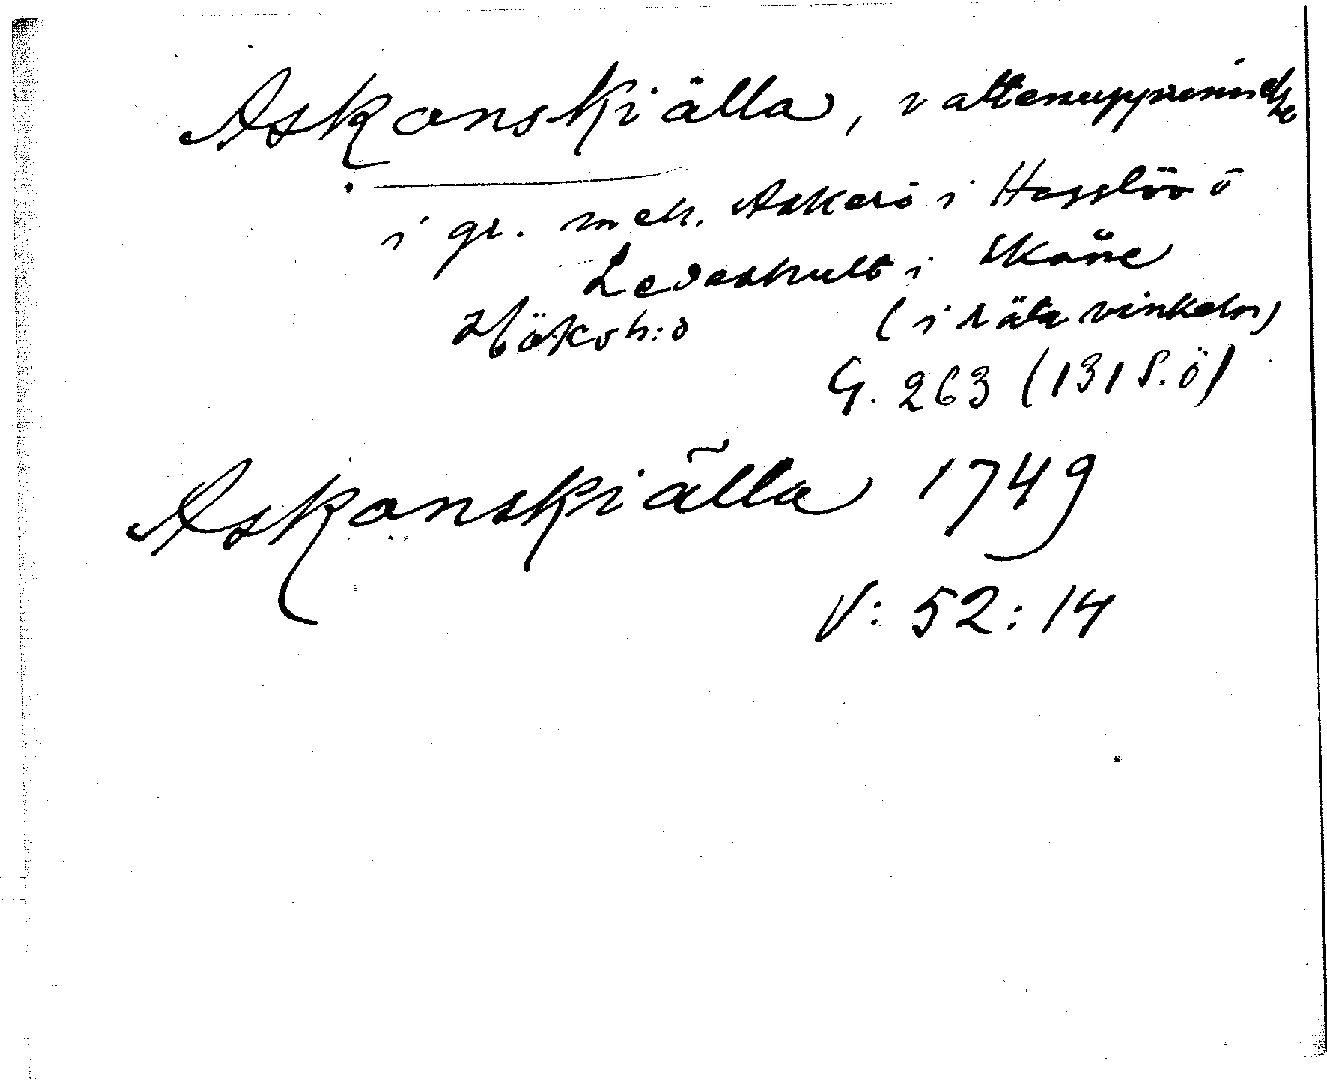 Askanskiälla, vattenupprinnelse
i gr. mell. Askerö i Hasslöv o
Ledeshult i Skåne
Höks h:d (i räta vinkeln)
G. 263 (131 S.Ö)
Askanskiälla 1749
V: 52: 14